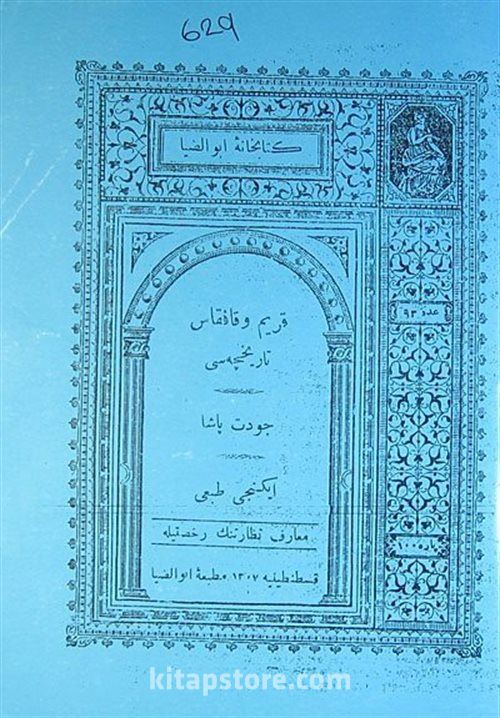 629
كتابخانهٔ ابوالضيا
عدد ٩٣
قريم و قافقاس
تاريخچه‌سی
جودت پاشا
ايكنجی طبعی
معارف نظارتنك رخصتيله
قسطنطينيه ١٣٠٧ مطبعهٔ ابوالضيا
kitapstore.com